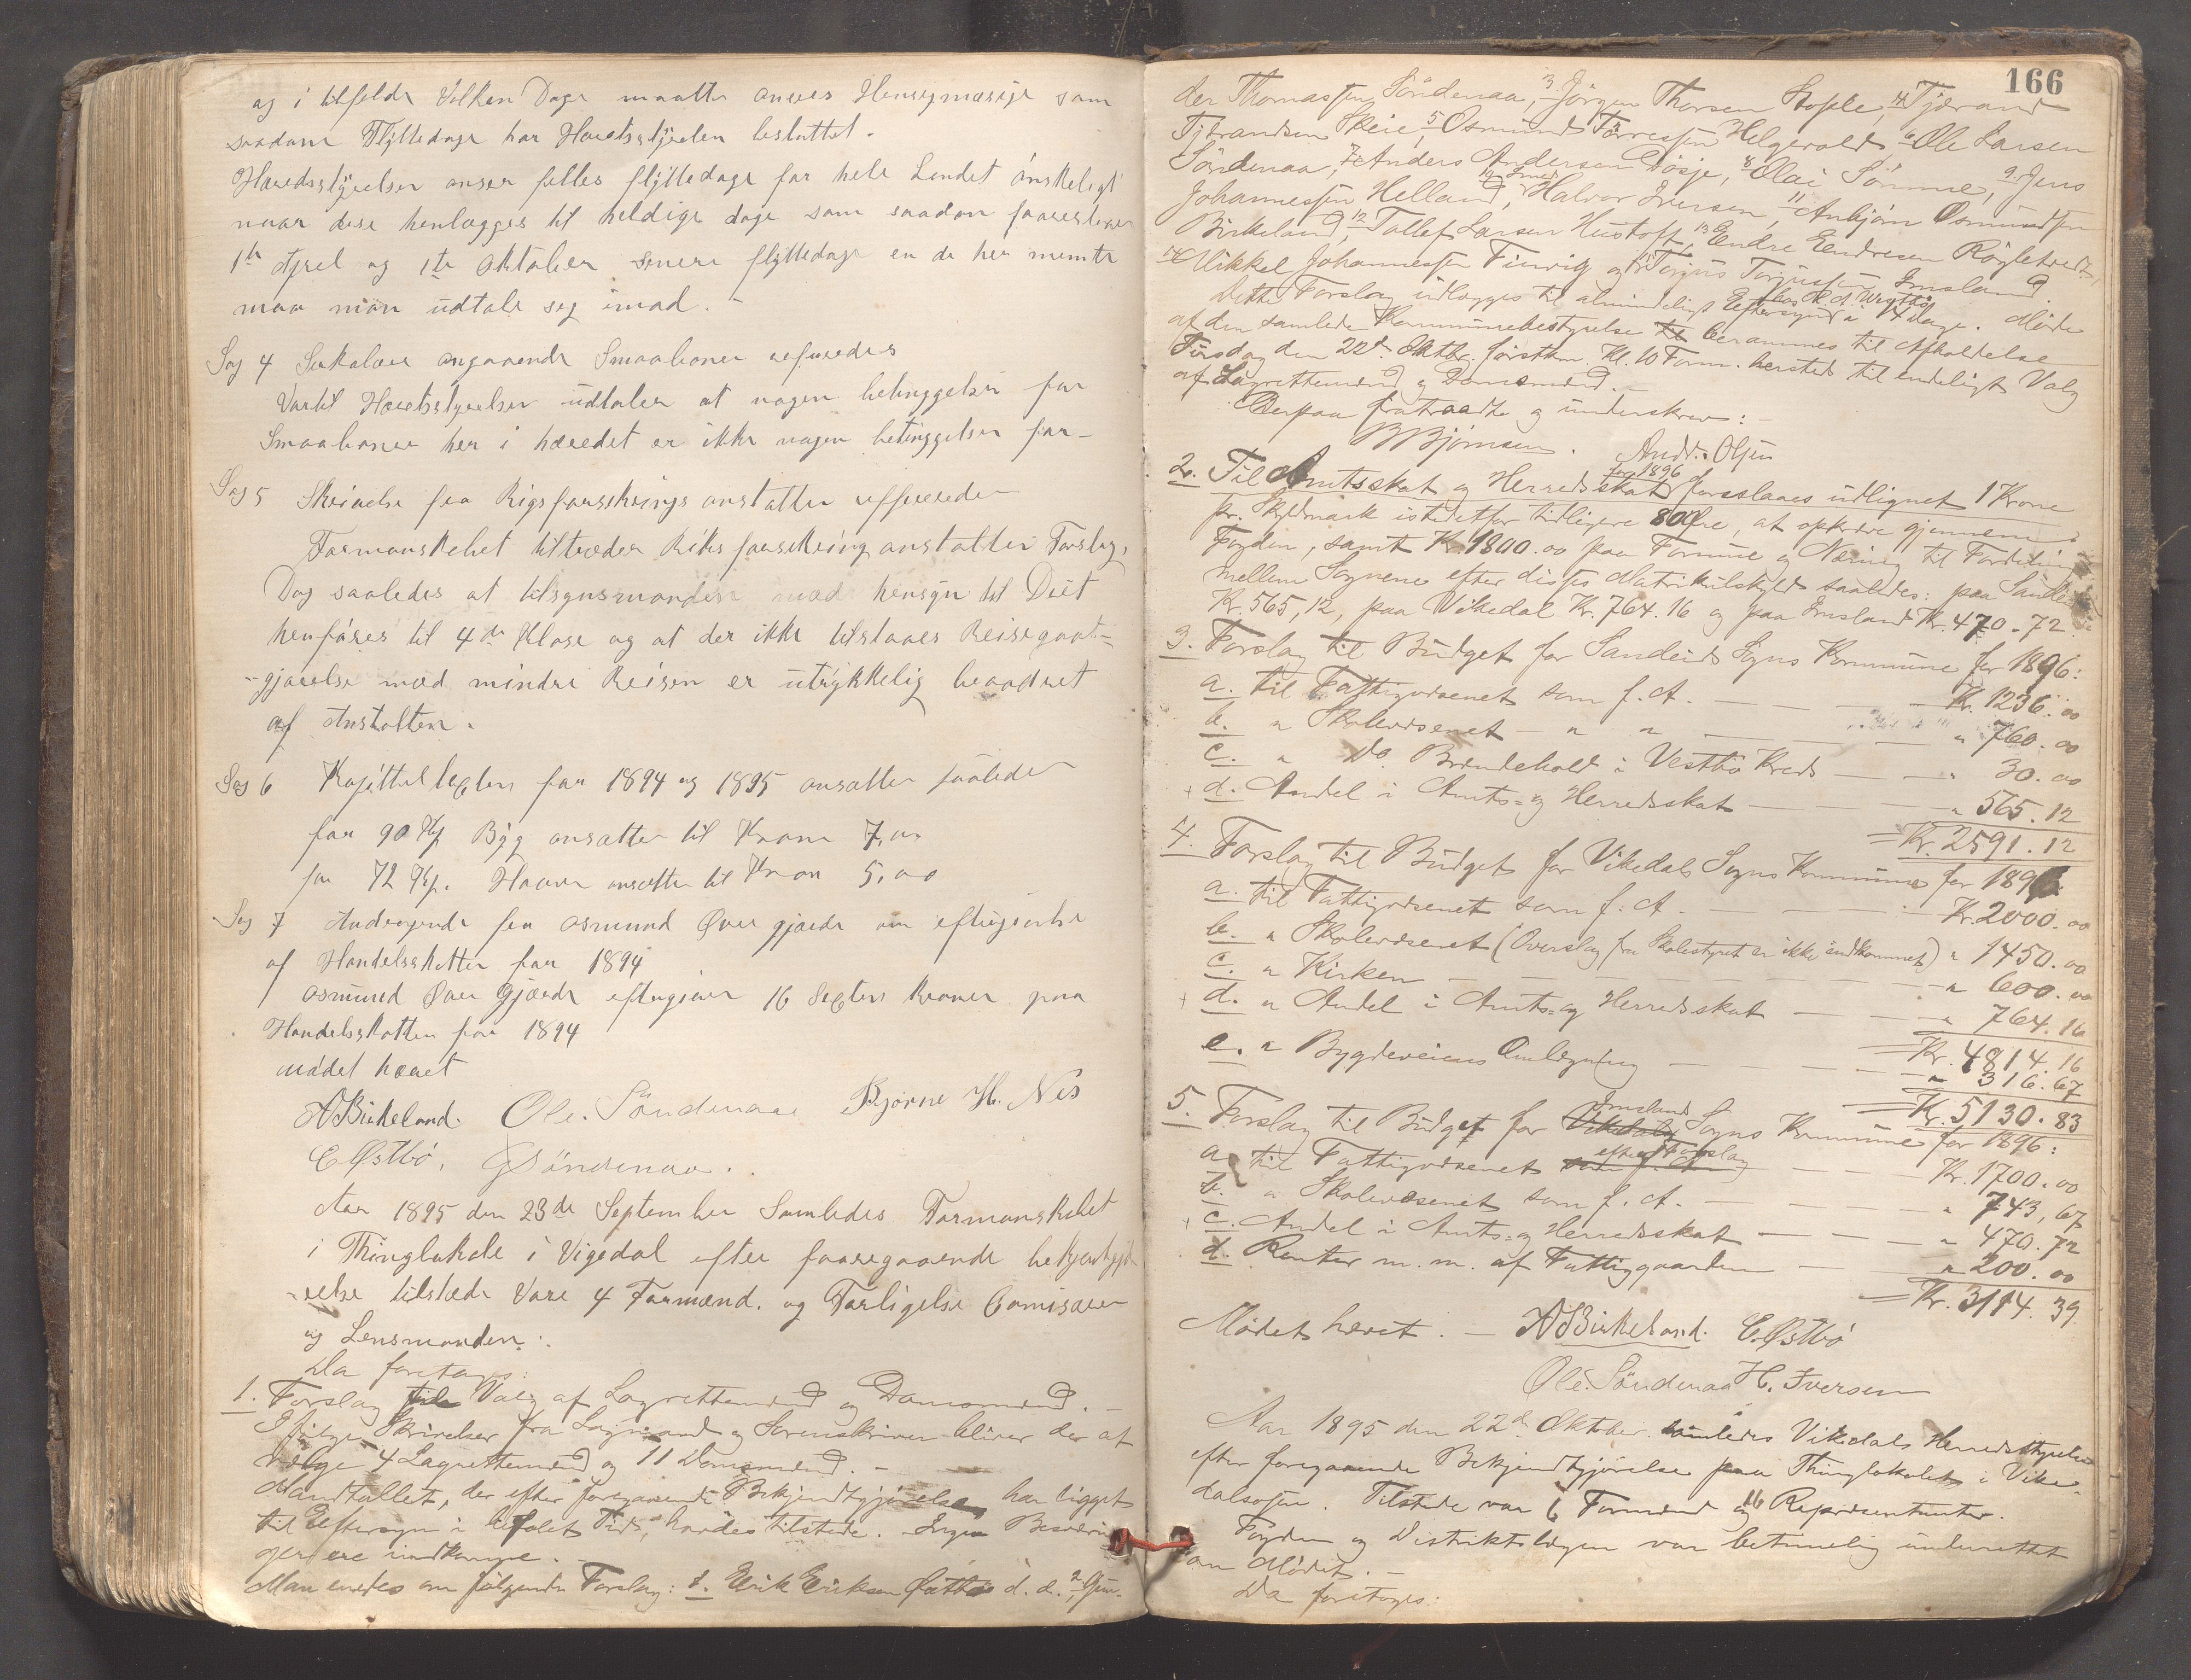 og i tilfelde Vilken Dage maatte anses Hensigmæsige som
saadane Flyttedage har Heredsstyrelsen besluttet.
Heredsstyrelsen anser felles flyttedage for hele Landet ønskeligt
naar disse henlægges til heldige dage som saadan foareslaaes
1te April og 1te Oktober senere flyttedage en de her nemnte
maa man udtale seg imod.
Sag 4 Sirkulære angaaende Smaabaner refereredes
Vartil Heredsstyrelsen udtaler at nogen betinggelser for
Smaabaner her i heredet er ikke nogen betinggelser for-
Sag 5 Skrivelse fra Rigsforsikrings anstalten refferereder
Formanskabet tiltræder Riks forsikring anstalten Forslag,
Dog saaledes at tilsynsmanden med hensyn til Diet
henføres til 4de Klase og at der ikke tilstaaes Reisegoat-
-gjørelse med mindre Reisen er utrykkelig beordret
af Anstalten.
Sag 6 Kapittelstagsten for 1894 og 1895 ansattes saaledes
for 90 Kg Byg ansattes til Krone 7,00
for 72 Kg. Havre ansættes til Kroner 5,00
Sag 7 Andragende fra Osmund Øvre gjærde om eftergivelse
af Handelsskatten for 1894
Osmund Øvre gjærde eftergives 16 Sexten Kroner paa
Handelsskatten for 1894
mødet hævet
A Birkeland. Ole. Søndenaa Bjørne H. Nes
C Østbø, G Søndenaa.
Aar 1895 den 23de September Samledes Formanskabet
i Thinglokale i Vigedal efter foaregaaende bekjentgjø
relse tilstæde Vare 4 Formænd. og Forligelse Comisærer
og Lensmanden.
Da foretages:
1. Forslag til Valg af Lagrettemænd og Domsmænd.
Ifølge Skrivelser fra Lagmand og Sorenskriver bliver der at
vælge 4 Lagrettemænd og 11 Domsmænd. -
Mandtallet, der efter foregaaende Bekjendtgjørelse har ligget
til Eftersyn i befalet Tid, havdes tilstede. Ingen Besværin
ger ere indkomne. -
Man enedes om følgende Forslag: 1. Eirik Eriksen Østbø d. e. 2. Gun-
166
der Thomassen Søndenaa, 3 Jørgen Thorsen Stople, 4. Tjærand
Tjærandsen Skeie, 5 Osmund Tørressen Helgevold 6 Ole Larsen
Søndenaa, 7. Anders Andersen Døsje, 8 Olai Sømme, 9. Jens
Johannessen Helland, 10 Smed Halvor Iversen, 11 Anbjørn Osmundsen
Birkeland, 12 Tollef Larsen Hustoft, 13 Endre Endresen Røgletvedt,
14 Mikkel Johannessen Finvig og 15 Torjus Torjussen Imsland.
Dette Forslag udlægges til almindeligt Eftersyn hos H. A. Westbø i 14 dage. Møde
af den samlede Kommunebestyrelse berammes til Afholdelse
Tirsdag den 22d. Oktbr. førstkm. Kl. 10 Form. hersteds til endeligt Valg
af Lagrettemænd og Domsmænd. -
Derpaa fratraadte og underskrev:
B Bjørnsen. Andr. Olsen
2. Til Amtsskat og Herredsskat for 1896 foreslaaes udlignet 1 Krone
pr. Skyldmark istedetfor tidligere 80 Øre, at opkræve gjennem
Fogden, samt Kr. 1800.00 paa Formue og Næring til Fordeling
mellem Sognene efter disses Matrikulskyld saaledes: paa Sandeid
Kr. 565,12, paa Vikedal Kr. 764.16 og paa Imsland Kr. 470.72
3. Forslag til Budget for Sandeids Sogns Kommune for 1896:
a. til Fattigvæsenet som f. A. — Kr. 1236.00
b. " Skolevæsenet — " " — " 760.00
c. " Do. Brændehold i Vestbø Kreds — " 30.00
+ d. Andel i Amts- og Herredsskat — " 565.12
= Kr. 2591.12
4. Forslag til Budget for Vikedals Sogns Kommune for 1896
a. til Fattigvæsenet som f. A. — Kr. 2000.00
b. " Skolevæsenet (Overslag fra Skolestyret er ikke indkommet) " 1450.00
c. " Kirken — " 600.00
+ d. " Andel i Amts- og Herredsskat — " 764.16
= Kr. 4814.16
e. " Bygdeveienes Omlægning — " 316.67
= Kr. 5130.83
5. Forslag til Budget for Vikedals Imslands Sogns Kommune for 1896:
a. til Fattigvæsenet som f. A. efter Forslag — Kr. 1700.00
b. " Skolevæsenet som f. A. — " 743,67
+ c. Andel i Amts- og Herredsskat — " 470.72
d. Renter m. m. af Fattiggaarden — " 200.00
= Kr. 3114.39
Mødet hævet. — A Birkeland. C. Østbø
Ole. Søndenaa H. Iversen
Aar 1895 den 22d. Oktober samledes Vikedals Herredsstyrelse
efter foregaaende Bekjendtgjørelse paa Thinglokalet i Vike-
dalsosen. Tilstede var 6 Formænd og 16 Repræsentanter.
Fogden og Distriktslægen var betimelig underrettet
om Mødet. -
Da foretoges: